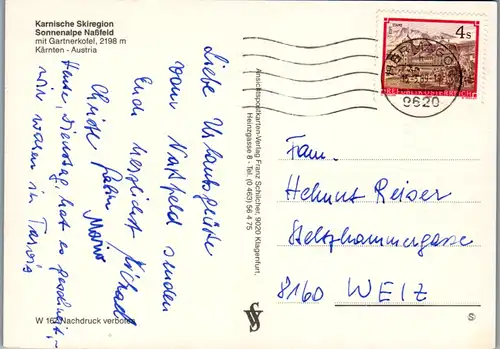 Karnische Skiregion
Sonnenalpe Naßfeld
mit Gartnerkofel, 2198 m
Kärnten - Austria
Liebe Urlaubsgrüße
vom Naßfeld senden
Euch herzlichst Michael
Christe Mario
Heute, Dienstag, hat es geschneit,
wir waren in Tarvis
W 162 Nachdruck verboten
Ansichtspostkarten-Verlag Franz Schilcher, 9020 Klagenfurt,
Heinzgasse 8 - Tel. (0 463) 56 4 75
4 S
STIFT STAMS
REPUBLIK ÖSTERREICH
9620
Fam.
Helmut Reiser
Stelzhammergasse
8160 WEIZ